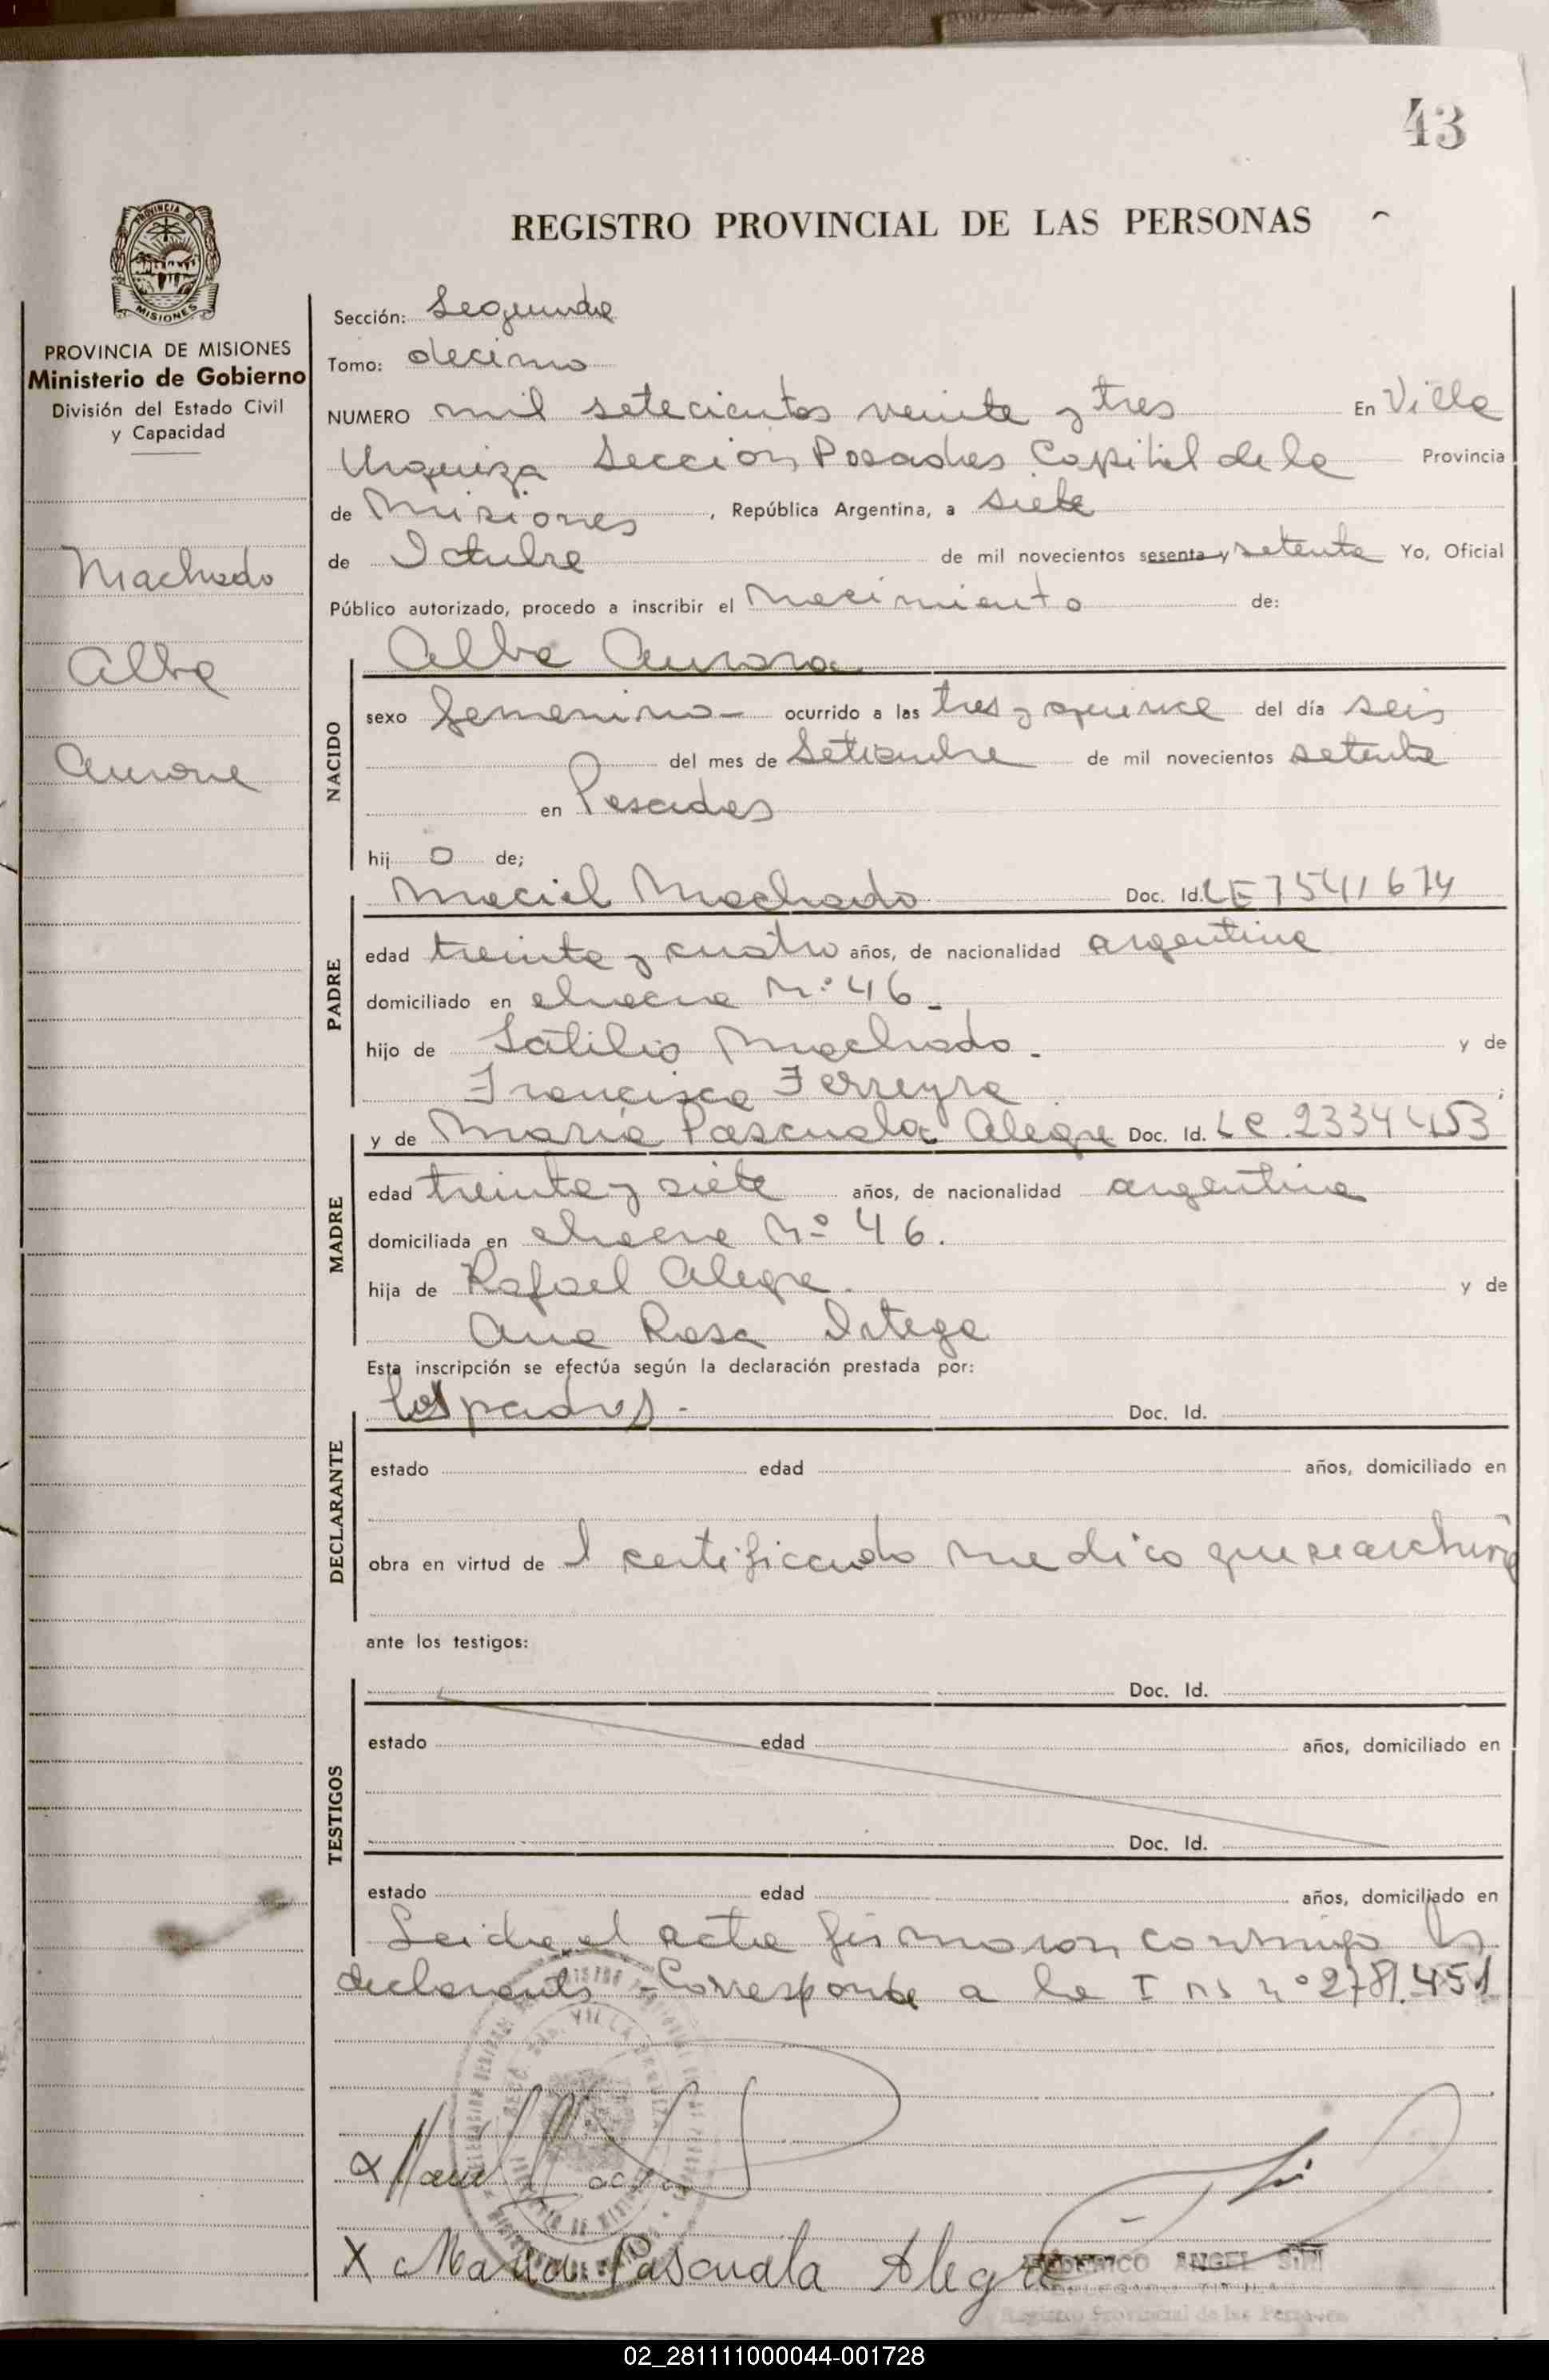 43
REGISTRO PROVINCIAL DE LAS PERSONAS
PROVINCIA DE MISIONES
Ministerio de Gobierno
División del Estado Civil
y Capacidad
Machado
Alba
Aurora
Sección: Segunda
Tomo: decimo
NUMERO mil setecientos veinte y tres En Villa
Urquiza Sección Posadas Capital de la Provincia
de Misiones, República Argentina, a siete
de Octubre de mil novecientos sesenta y setenta Yo, Oficial
Público autorizado, procedo a inscribir el Nacimiento de:
Alba Aurora
NACIDO
sexo femenino - ocurrido a las tres y quince del día seis
del mes de Setiembre de mil novecientos setenta
en Posadas
hij o de;
PADRE
Maciel Machado Doc. Id. LE 7541674
edad treinta y cuatro años, de nacionalidad argentina
domiciliado en chacra N° 46.
hijo de Satilio Machado. y de
Francisca Ferreyra ;
MADRE
y de Maria Pascuala Alegre Doc. Id. LC. 2334453
edad treinta y siete años, de nacionalidad argentina
domiciliada en chacra Nº 46.
hija de Rafael Alegre. y de
Ana Rosa Ortega
Esta inscripción se efectúa según la declaración prestada por:
DECLARANTE
los padres. Doc. Id.
estado edad años, domiciliado en
obra en virtud de l certificado medico que se archiva
ante los testigos:
TESTIGOS
Doc. Id.
estado edad años, domiciliado en
Doc. Id.
estado edad años, domiciliado en
Leida el acta firmaron conmigo los
declarants - Corresponde a la I ns n° 278.451
X Maria Pascuala Alegre
ANGEL
Registro Provincial de las Personas
02_281111000044-001728